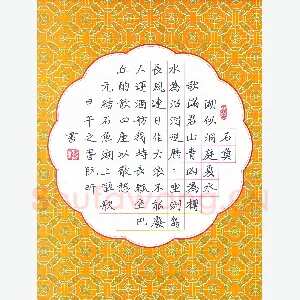 石魚
湖似洞庭夏水
欲滿君山青山為樽
水為沼酒徒歷歷坐洲島
長風連日作大浪不能廢
人運酒舫我持長瓢坐巴
丘酌飲四座以散愁
元結石魚湖上醉歌
甲午之春
書